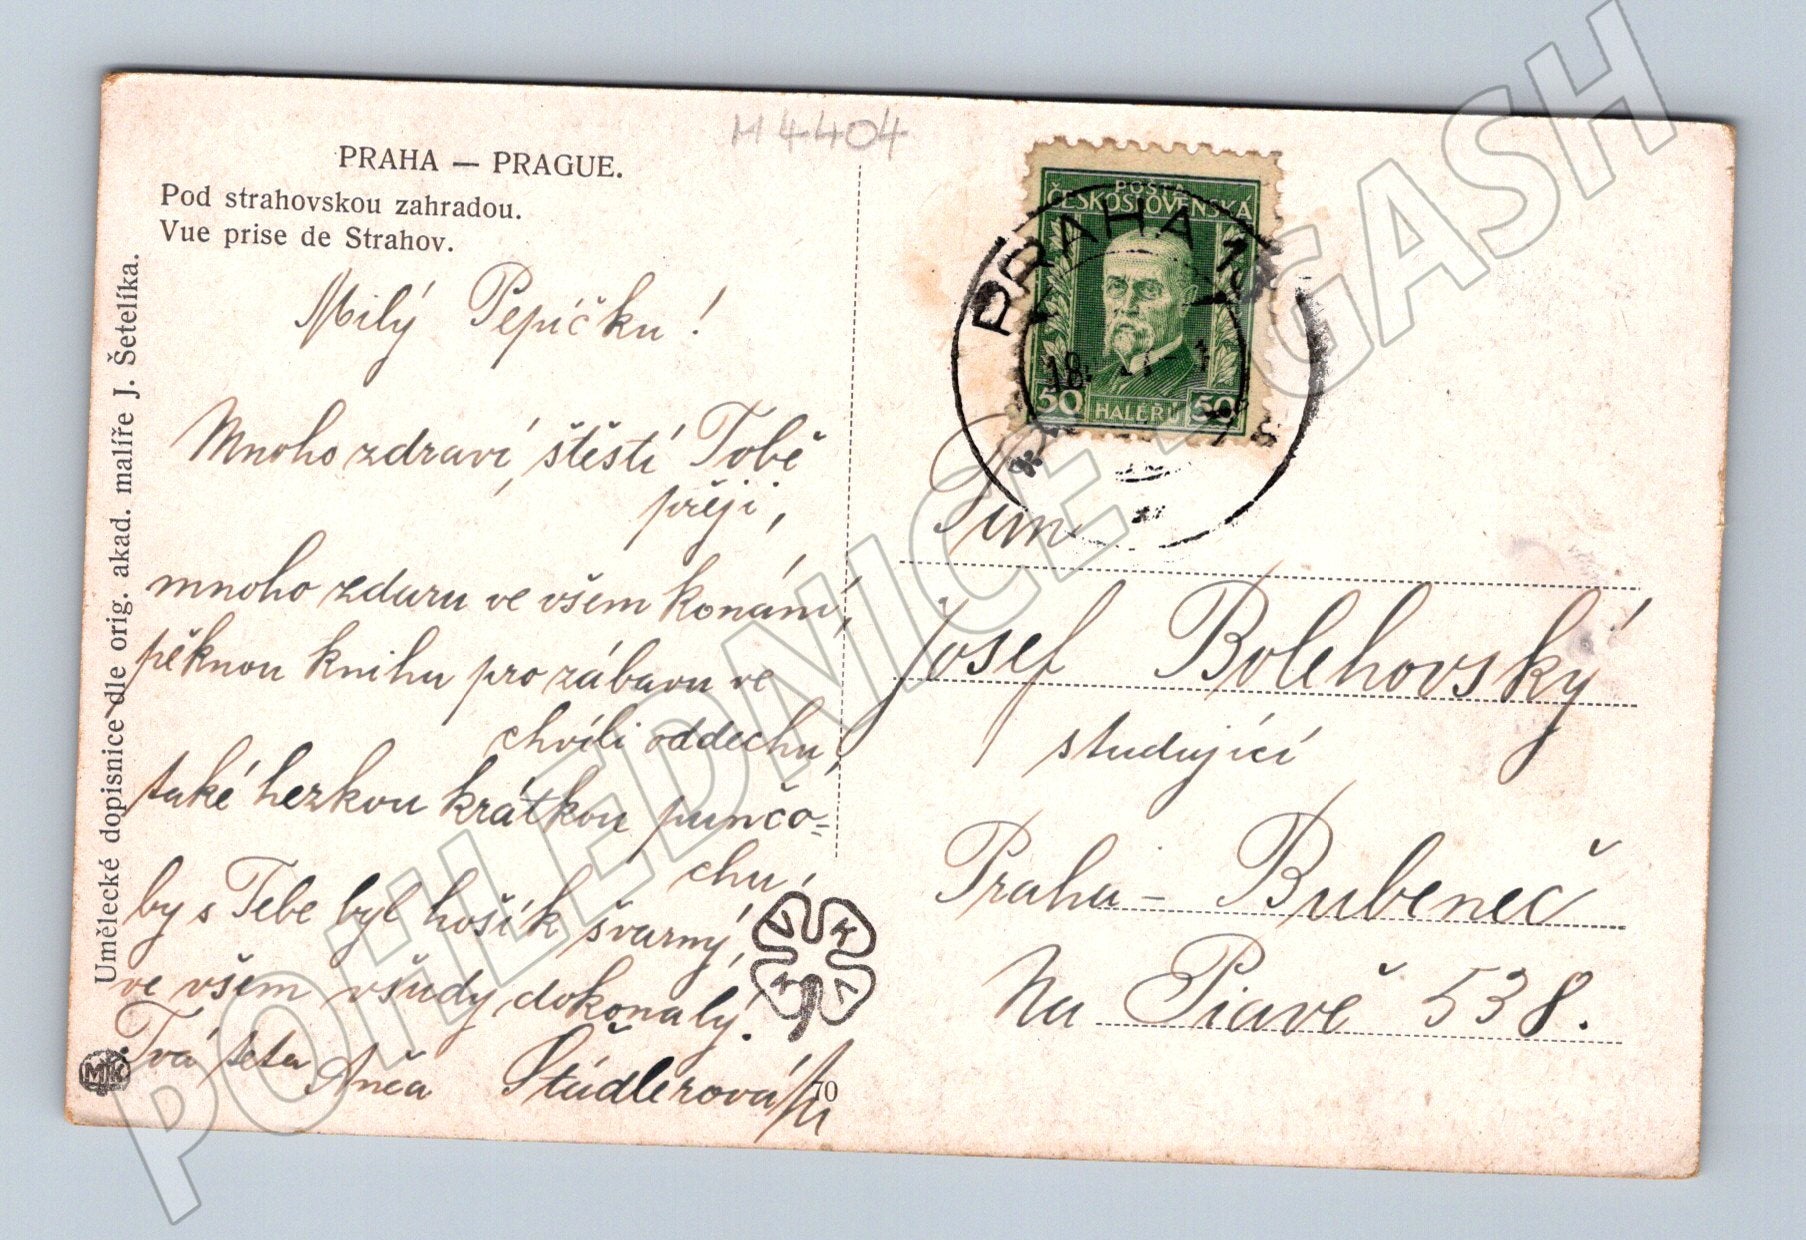 H 4404
PRAHA — PRAGUE.
Pod strahovskou zahradou.
Vue prise de Strahov.
Umělecké dopisnice dle orig. akad. malíře J. Šetelíka.
Milý Pepíčku!
Mnoho zdraví, štěstí Tobě
přeji,
mnoho zdaru ve všem konání,
pěknou knihu pro zábavu ve
chvíli oddechu,
také hezkou krátkou punčo=
chu,
by s Tebe byl hošík švarný,
ve všem všudy dokonalý.
Tvá teta Anča Städlerová
70
MK
POŠTA
ČESKOSLOVENSKÁ
50 HALÉŘŮ 50
PRAHA
18
Pan
Josef Bolehovský
studující
Praha - Bubeneč
Na Piavě 538.
POHLEDNICE BGASH